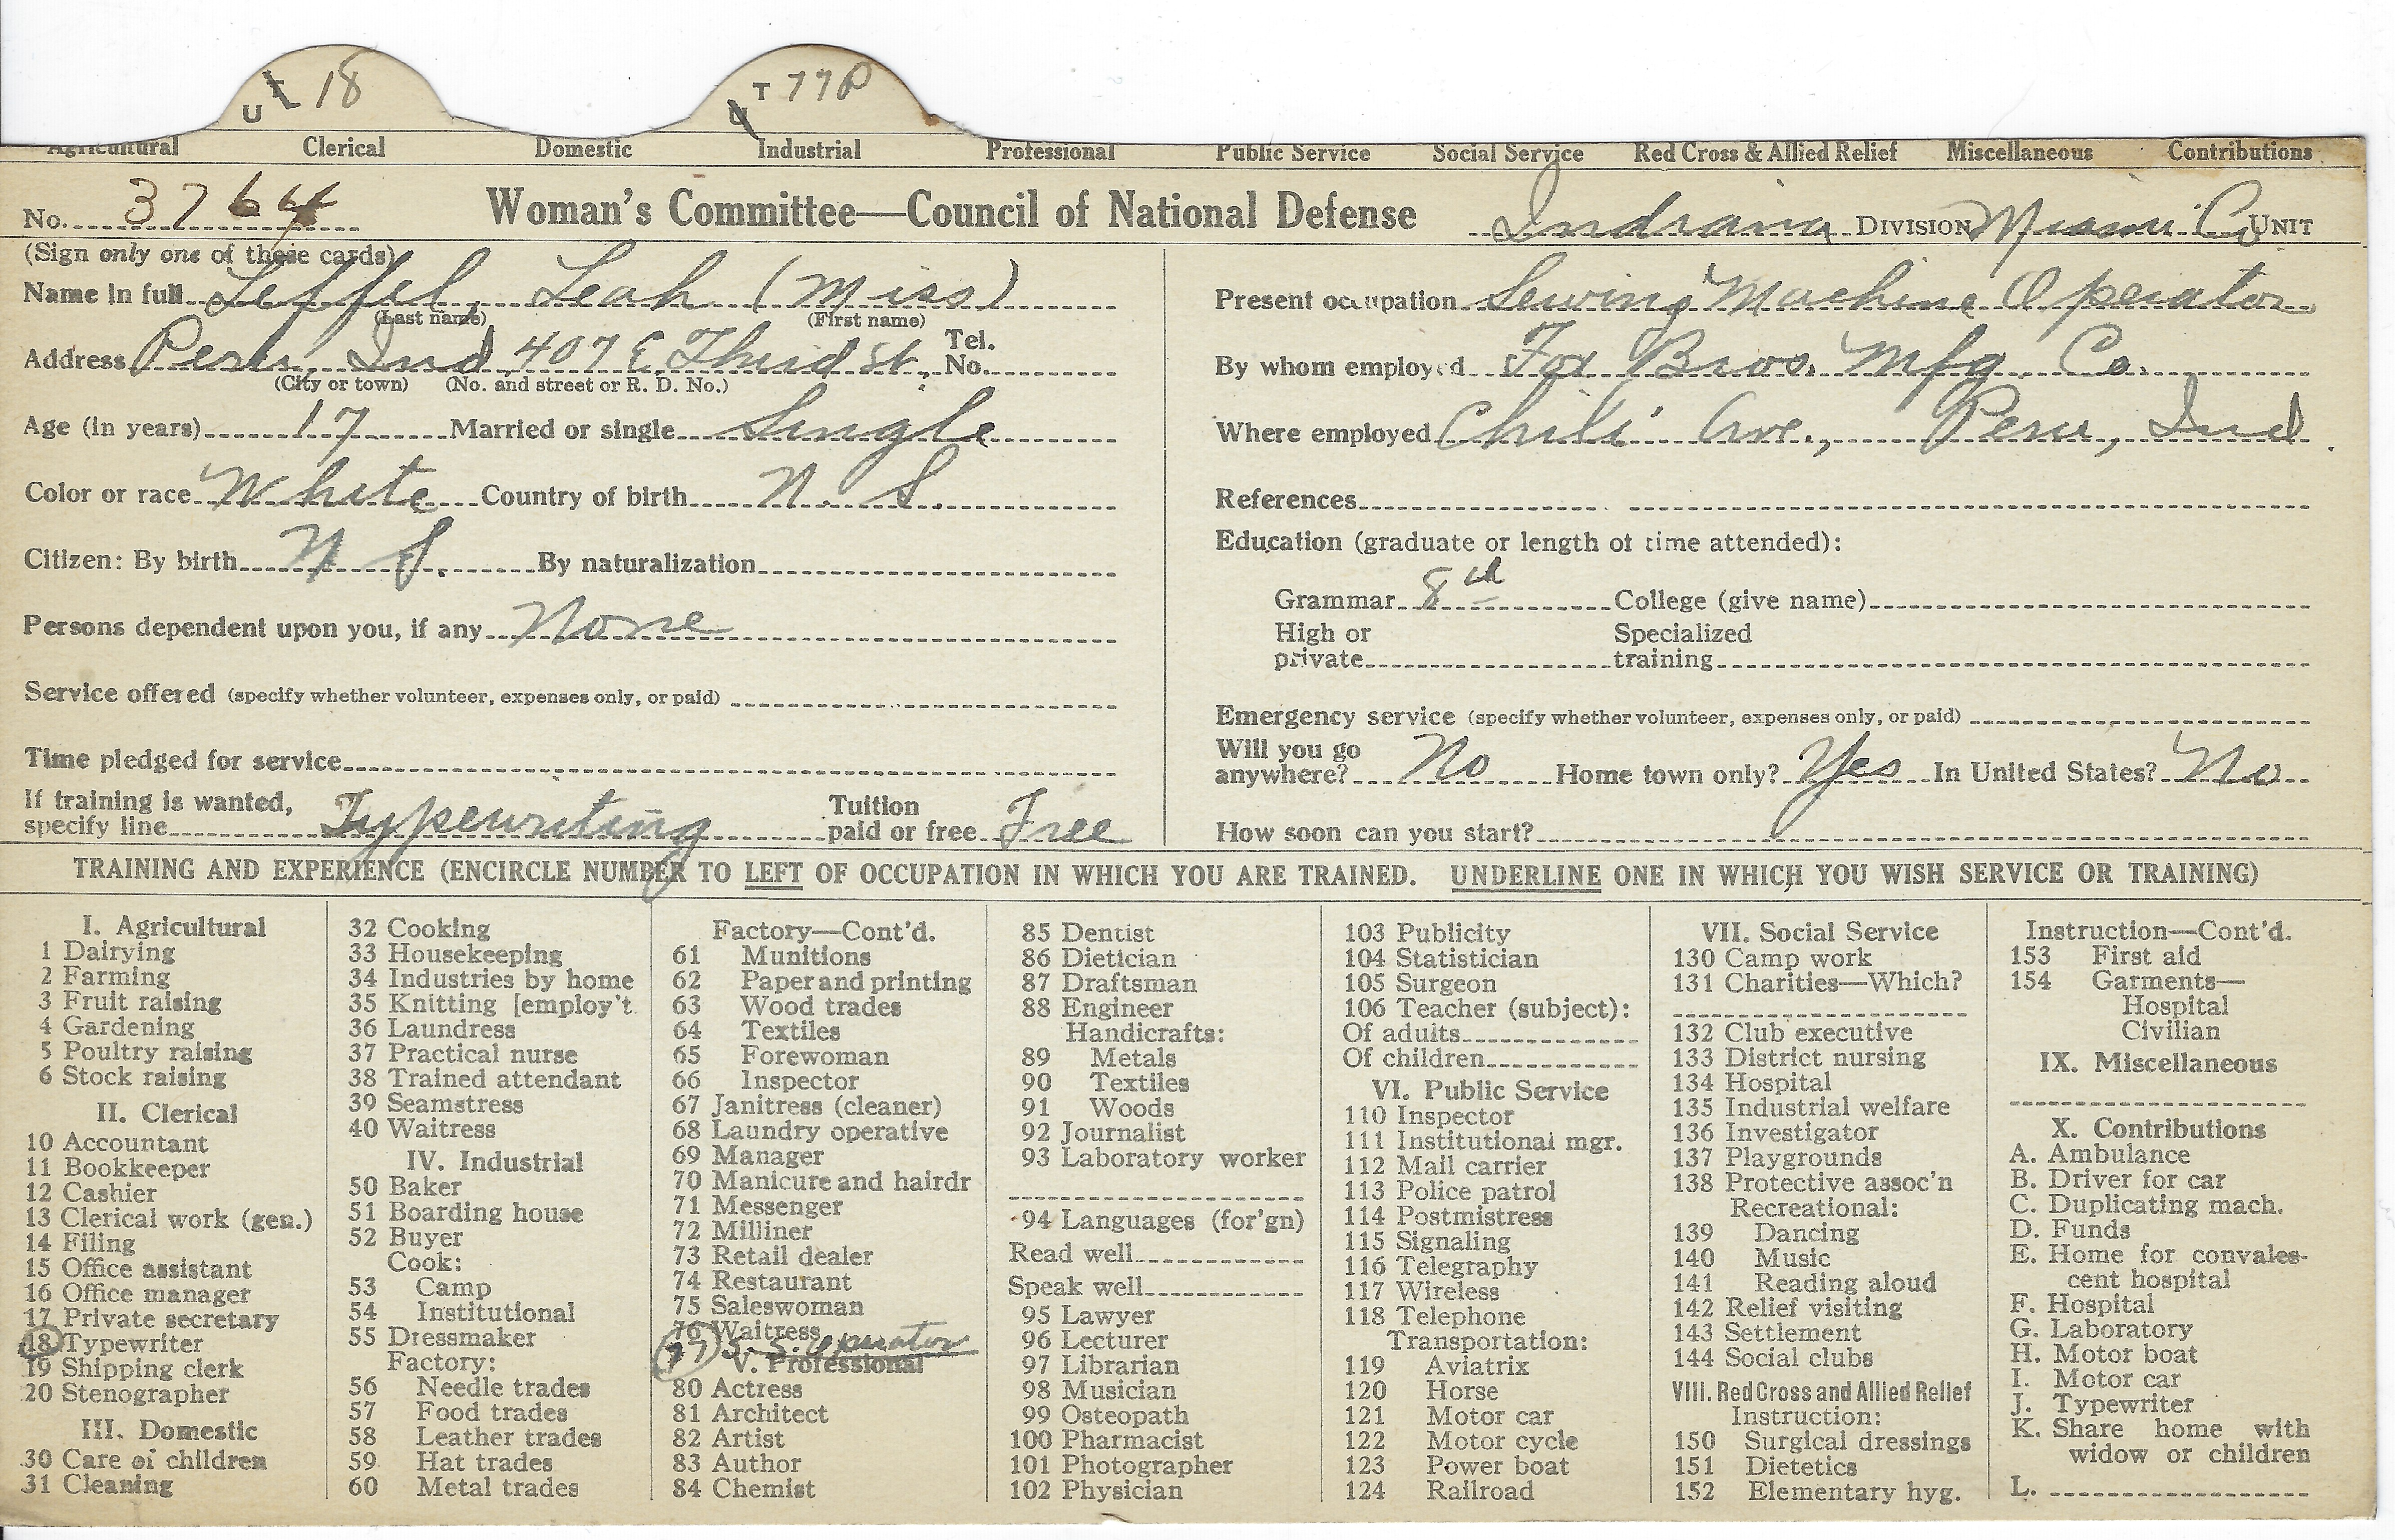 U T 18
U T 77P
Agricultural Clerical Domestic Industrial Professional Public Service Social Service Red Cross & Allied Relief Miscellaneous Contributions
No. 3764 Woman's Committee—Council of National Defense Indiana DIVISION Miami Co UNIT
(Sign only one of these cards)
Name in full Leffel, Leah (Miss)
(Last name) (First name)
Address Peru, Ind 407 E Third St. Tel. No.
(City or town) (No. and street or R. D. No.)
Age (in years) 17 Married or single Single
Color or race White Country of birth N. S.
Citizen: By birth N S. By naturalization
Persons dependent upon you, if any None
Service offered (specify whether volunteer, expenses only, or paid)
Time pledged for service
If training is wanted, specify line Typewriting Tuition paid or free Free
Present occupation Sewing Machine Operator
By whom employed Fox Bros. Mfg. Co.
Where employed Chili Ave., Peru, Ind.
References
Education (graduate or length of time attended):
Grammar 8th College (give name)
High or Specialized
private training
Emergency service (specify whether volunteer, expenses only, or paid)
Will you go
anywhere? No Home town only? Yes In United States? No
How soon can you start?
TRAINING AND EXPERIENCE (ENCIRCLE NUMBER TO LEFT OF OCCUPATION IN WHICH YOU ARE TRAINED. UNDERLINE ONE IN WHICH YOU WISH SERVICE OR TRAINING)
I. Agricultural
1 Dairying
2 Farming
3 Fruit raising
4 Gardening
5 Poultry raising
6 Stock raising
II. Clerical
10 Accountant
11 Bookkeeper
12 Cashier
13 Clerical work (gen.)
14 Filing
15 Office assistant
16 Office manager
17 Private secretary
18 Typewriter
19 Shipping clerk
20 Stenographer
III. Domestic
30 Care of children
31 Cleaning
32 Cooking
33 Housekeeping
34 Industries by home
35 Knitting [employ't
36 Laundress
37 Practical nurse
38 Trained attendant
39 Seamstress
40 Waitress
IV. Industrial
50 Baker
51 Boarding house
52 Buyer
Cook:
53 Camp
54 Institutional
55 Dressmaker
Factory:
56 Needle trades
57 Food trades
58 Leather trades
59 Hat trades
60 Metal trades
Factory—Cont'd.
61 Munitions
62 Paper and printing
63 Wood trades
64 Textiles
65 Forewoman
66 Inspector
67 Janitress (cleaner)
68 Laundry operative
69 Manager
70 Manicure and hairdr
71 Messenger
72 Milliner
73 Retail dealer
74 Restaurant
75 Saleswoman
76 Waitress
77 S. S. Operator
V. Professional
80 Actress
81 Architect
82 Artist
83 Author
84 Chemist
85 Dentist
86 Dietician
87 Draftsman
88 Engineer
Handicrafts:
89 Metals
90 Textiles
91 Woods
92 Journalist
93 Laboratory worker
94 Languages (for'gn)
Read well
Speak well
95 Lawyer
96 Lecturer
97 Librarian
98 Musician
99 Osteopath
100 Pharmacist
101 Photographer
102 Physician
103 Publicity
104 Statistician
105 Surgeon
106 Teacher (subject):
Of adults
Of children
VI. Public Service
110 Inspector
111 Institutional mgr.
112 Mail carrier
113 Police patrol
114 Postmistress
115 Signaling
116 Telegraphy
117 Wireless
118 Telephone
Transportation:
119 Aviatrix
120 Horse
121 Motor car
122 Motor cycle
123 Power boat
124 Railroad
VII. Social Service
130 Camp work
131 Charities—Which?
132 Club executive
133 District nursing
134 Hospital
135 Industrial welfare
136 Investigator
137 Playgrounds
138 Protective assoc'n
Recreational:
139 Dancing
140 Music
141 Reading aloud
142 Relief visiting
143 Settlement
144 Social clubs
VIII. Red Cross and Allied Relief
Instruction:
150 Surgical dressings
151 Dietetics
152 Elementary hyg.
Instruction—Cont'd.
153 First aid
154 Garments—
Hospital
Civilian
IX. Miscellaneous
X. Contributions
A. Ambulance
B. Driver for car
C. Duplicating mach.
D. Funds
E. Home for convales-
cent hospital
F. Hospital
G. Laboratory
H. Motor boat
I. Motor car
J. Typewriter
K. Share home with
widow or children
L.